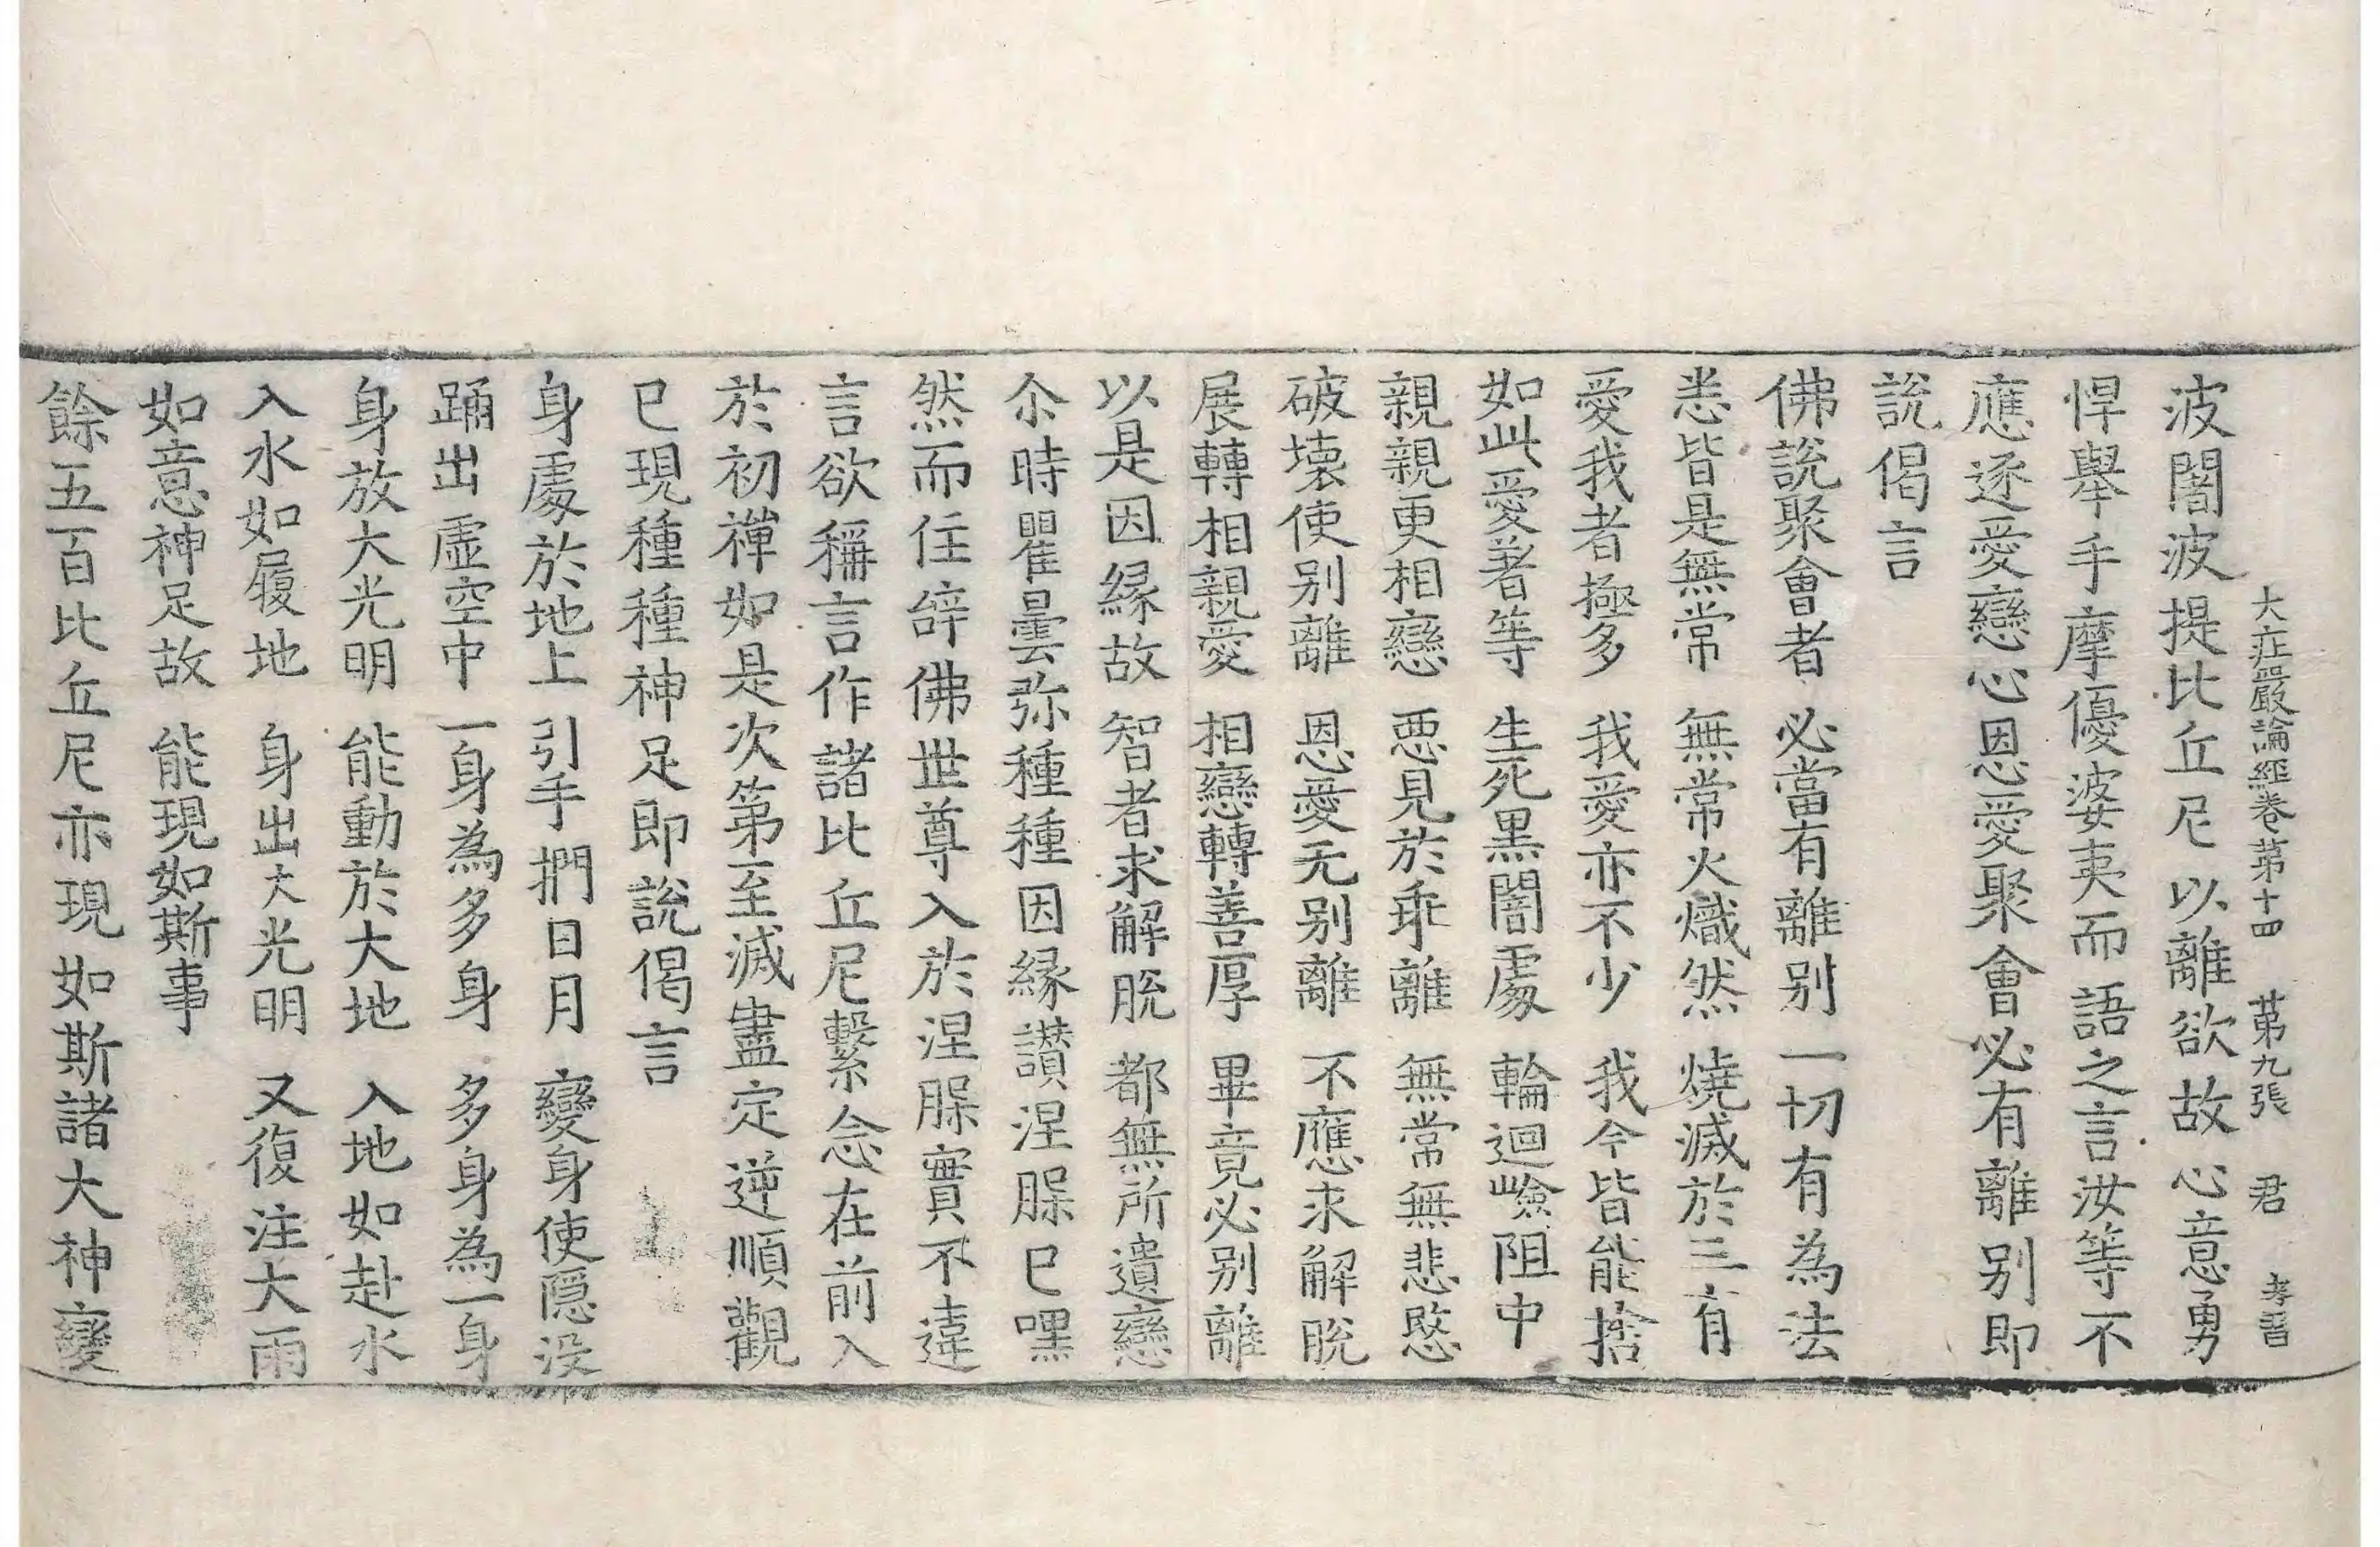 大庄嚴論經卷第十四 第九張 君 孝習
波闍波提比丘尼以離欲故心意勇
悍舉手摩優婆夷而語之言汝等不
應逐愛戀心恩愛聚會必有離別即
說偈言
佛說聚會者 必當有離別 一切有為法
悉皆是無常 無常火熾然 燒滅於三有
愛我者極多 我愛亦不少 我今皆能捨
如此愛著等 生死黑闇處 輪迴嶮阻中
親親更相戀 惡見於乖離 無常無悲愍
破壞使別離 恩愛无別離 不應求解脫
展轉相親愛 相戀轉善厚 畢竟必別離
以是因緣故 智者求解脫 都無所遺戀
尒時瞿曇弥種種因緣讃涅槃已嘿
然而住辝佛世尊入於涅槃實不違
言欲稱言作諸比丘尼繫念在前入
於初禪如是次第至滅盡定逆順觀
已現種種神足即說偈言
身處於地上 引手捫日月 變身使隱没
踊出虛空中 一身為多身 多身為一身
身放大光明 能動於大地 入地如赴水
入水如履地 身出大光明 又復注大雨
如意神足故 能現如斯事
餘五百比丘尼亦現如斯諸大神變